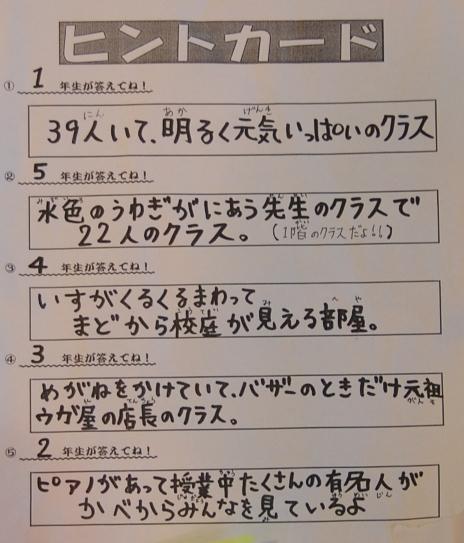 ヒントカード
① 1 年生が答えてね!
39人いて、明るく元気いっぱいのクラス
② 5 年生が答えてね!
水色のうわぎがにあう先生のクラスで
22人のクラス。(1階のクラスだよ!!)
③ 4 年生が答えてね!
いすがくるくるまわって
まどから校庭が見える部屋。
④ 3 年生が答えてね!
めがねをかけていて、バザーのときだけ元祖
ウガ屋の店長のクラス。
⑤ 2 年生が答えてね!
ピアノがあって授業中たくさんの有名人が
かべからみんなを見ているよ